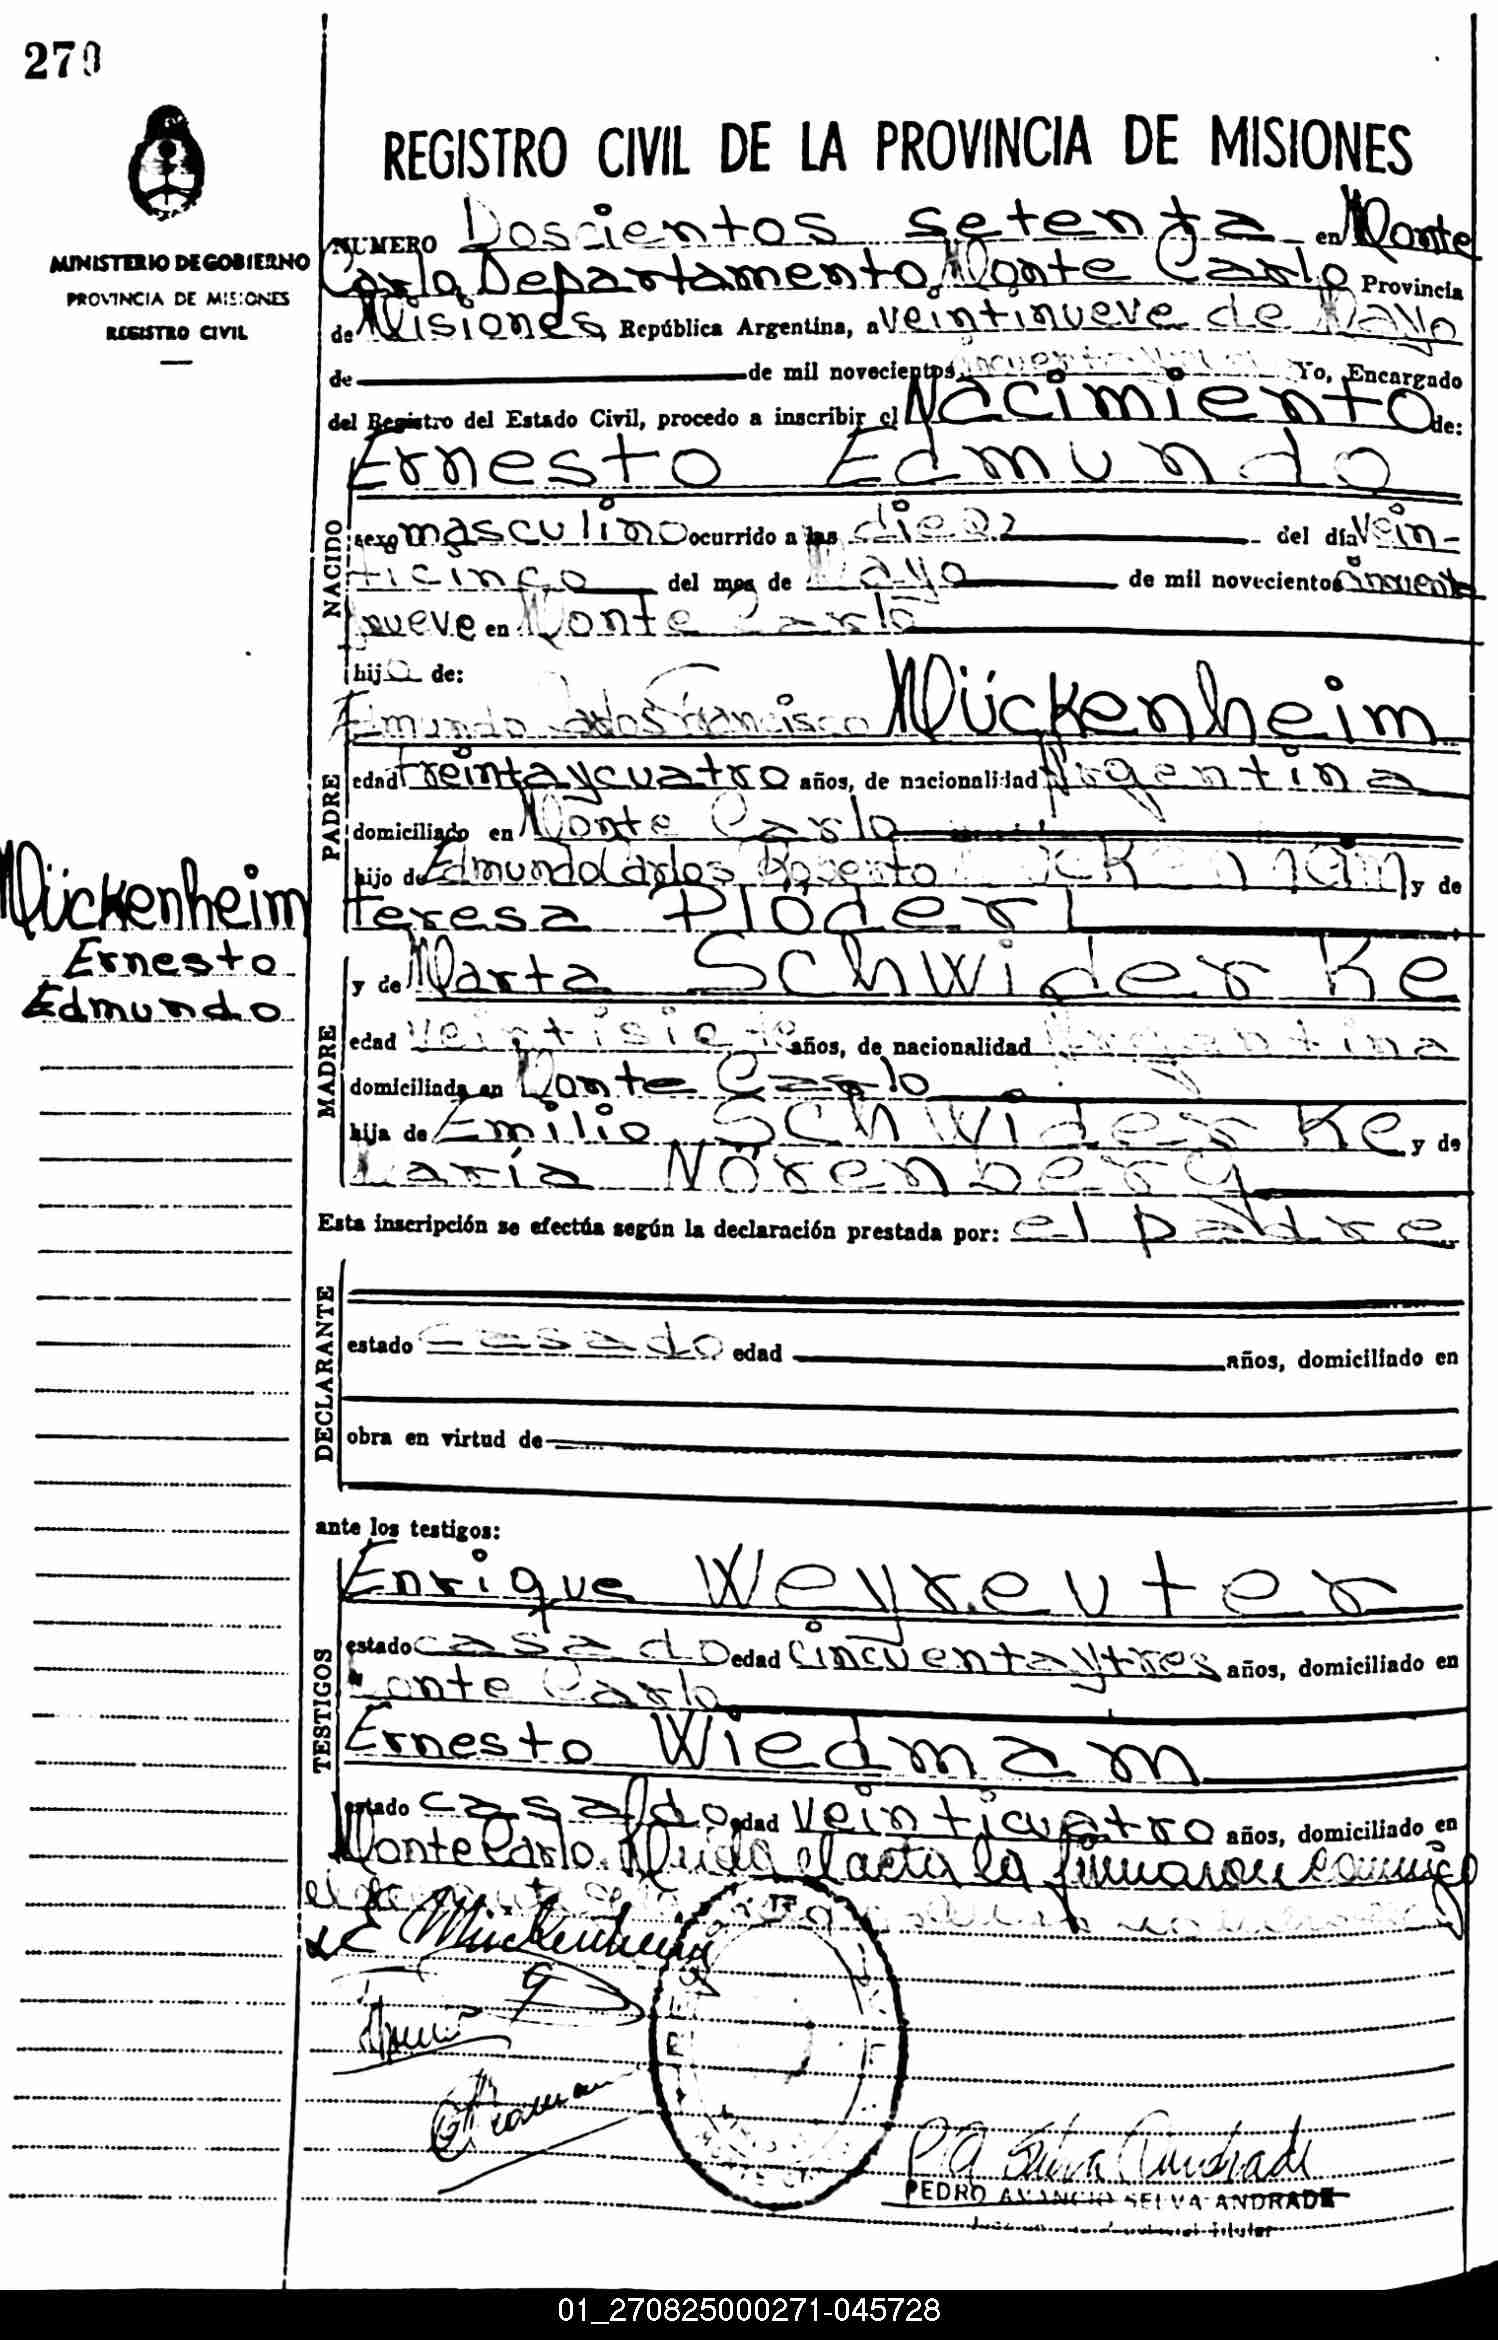 270
REGISTRO CIVIL DE LA PROVINCIA DE MISIONES
MINISTERIO DE GOBIERNO
PROVINCIA DE MISIONES
REGISTRO CIVIL
NUMERO Doscientos setenta en Monte
Carlo, Departamento Monte Carlo Provincia
de Misiones República Argentina, a veintinueve de Mayo
de de mil novecientos cincuenta y nueve Yo, Encargado
del Registro del Estado Civil, procedo a inscribir el Nacimiento de:
Ernesto Edmundo
NACIDO
sexo masculino ocurrido a las diez del día vein-
ticinco del mes de Mayo de mil novecientos cincuenta
nueve en Monte Carlo
hijo de:
Edmundo Carlos Francisco Mückenheim
PADRE
edad treinta y cuatro años, de nacionalidad Argentina
domiciliado en Monte Carlo
hijo de Edmundo Carlos Roberto Mückenheim y de
Teresa Plöderl
Mückenheim
Ernesto
Edmundo
MADRE
y de Marta Schwiderke
edad veintisiete años, de nacionalidad Argentina
domiciliada en Monte Carlo
hija de Emilio Schwiderke y de
María Nörenberg
Esta inscripción se efectúa según la declaración prestada por: el padre
DECLARANTE
estado casado edad años, domiciliado en
obra en virtud de
ante los testigos:
TESTIGOS
Enrique Weyreuter
estado casado edad cincuenta y tres años, domiciliado en
Monte Carlo
Ernesto Wiedmam
estado casado edad veinticuatro años, domiciliado en
Monte Carlo. el acta la firmaron conmigo
el
Mückenheim
P A Selva Andrade
PEDRO AMANCIO SELVA ANDRADE
Titular
01_270825000271-045728